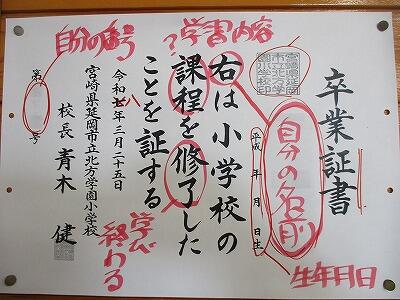 卒業証書
自分の名前
平成 年 月 日生
生年月日
右は小学校の
課程を修了した
ことを証する
?学書内容
学び
終わる
令和七年三月二十五日
八
宮崎県延岡市立北方学園小学校
校長 青木 健
第 号
自分の